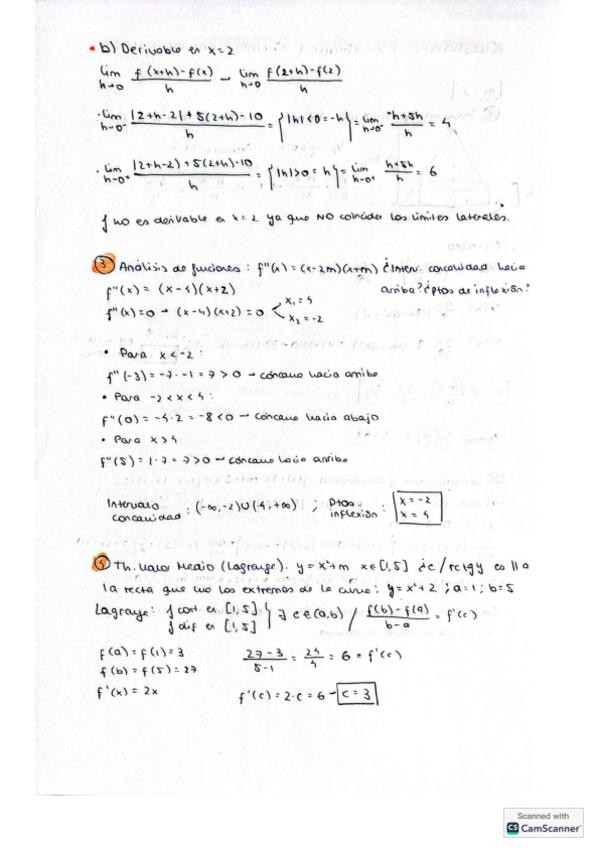 • b) Derivable en x=2
lim h→0 f(x+h)-f(x) / h → lim h→0 f(2+h)-f(2) / h
· lim h→0⁻ |2+h-2|+5(2+h)-10 / h = {|h|<0=-h} = lim h→0⁻ -h+5h / h = 4
· lim h→0⁺ |2+h-2)+5(2+h)-10 / h = {|h|>0=h} = lim h→0⁺ h+5h / h = 6
f no es derivable en x=2 ya que NO coinciden los límites laterales.
③ Análisis de funciones: f''(x)=(x-2m)(x+m) ¿Interv. concavidad hacia
arriba? ¿ptos de inflexión?
f''(x) = (x-4)(x+2)
f''(x)=0 → (x-4)(x+2)=0 x₁=4
x₂=-2
• Para x<-2:
f''(-3)=-7·-1=7>0 → cóncava hacia arriba
• Para -2<x<4:
f''(0)=-4·2=-8<0 → cóncava hacia abajo
• Para x>4
f''(5)=1·7=7>0 → cóncava hacia arriba
Intervalo concavidad: (-∞,-2)∪(4,+∞) ; Ptos inflexión: x=-2
x=4
④ Th. Valor Medio (Lagrange). y=x²+m x∈[1,5] ¿c/ rctgy es || a
la recta que une los extremos de la curva: y=x²+2 ; a=1; b=5
Lagrange: f cont. en [1,5] } ∃ c∈(a,b) / f(b)-f(a) / b-a = f'(c)
f dif en [1,5]
f(a)=f(1)=3 27-3 / 5-1 = 24 / 4 = 6 = f'(c)
f(b)=f(5)=27
f'(x)=2x f'(c)=2·c=6 → c=3
Scanned with
CS CamScanner